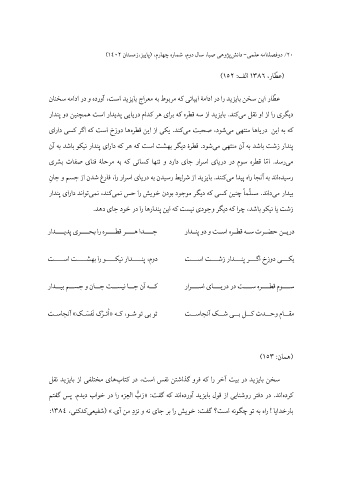 ۲۰/ دوفصلنامه علمی- دانش‌پژوهی صبا، سال دوم، شماره چهارم، (پاییز، زمستان ۱۴۰۲)
(عطّار، ۱۳۸۶ الف: ۱۵۲)
عطّار این سخن بایزید را در ادامهٔ ابیاتی که مربوط به معراج بایزید است، آورده و در ادامه سخنان
دیگری را از او نقل می‌کند. بایزید از سه قطره که برای هر کدام دریایی پدیدار است همچنین دو پندار
که به این دریاها منتهی می‌شود، صحبت می‌کند. یکی از این قطره‌ها دوزخ است که اگر کسی دارای
پندار زشت باشد به آن منتهی می‌شود. قطره دیگر بهشت است که هر که دارای پندار نیکو باشد به آن
می‌رسد. امّا قطره سوم در دریای اسرار جای دارد و تنها کسانی که به مرحلهٔ فنای صفات بشری
رسیده‌اند به آنجا راه پیدا می‌کنند. بایزید از شرایط رسیدن به دریای اسرار را، فارغ شدن از جسم و جان
بیدار می‌داند. مسلّماً چنین کسی که دیگر موجود بودن خویش را حس نمی‌کند، نمی‌تواند دارای پندار
زشت یا نیکو باشد، چرا که دیگر وجودی نیست که این پندارها را در خود جای دهد.
دریـن حضـرت سـه قطـره اسـت و دو پنـدار جـــدا هـــر قطـــره را بحـــری پدیـــدار
یکـــی دوزخ اگـــر پنـــدار زشـــت اســـت دوم، پنـــدار نیکـــو را بهشـــت اســـت
ســـوم قطـــره ســـت در دریـــای اســـرار کـه آن جـا نیسـت جـان و جسـم بیـدار
مقـام وحـدت کـل بـی شـک آنجاسـت تو بی تو شو، کـه «اُترُک نَفسَک» آنجاسـت
(همان: ۱۵۳)
سخن بایزید در بیت آخر را که فرو گذاشتن نفس است، در کتاب‌های مختلفی از بایزید نقل
کرده‌اند. در دفتر روشنایی از قول بایزید آورده‌اند که گفت: «رَبُّ العِزه را در خواب دیدم. پس گفتم
بارخدایا ! راه به تو چگونه است؟ گفت: خویش را بر جای نه و نزدِ من آی.» (شفیعی‌کدکنی، ۱۳۸۴: